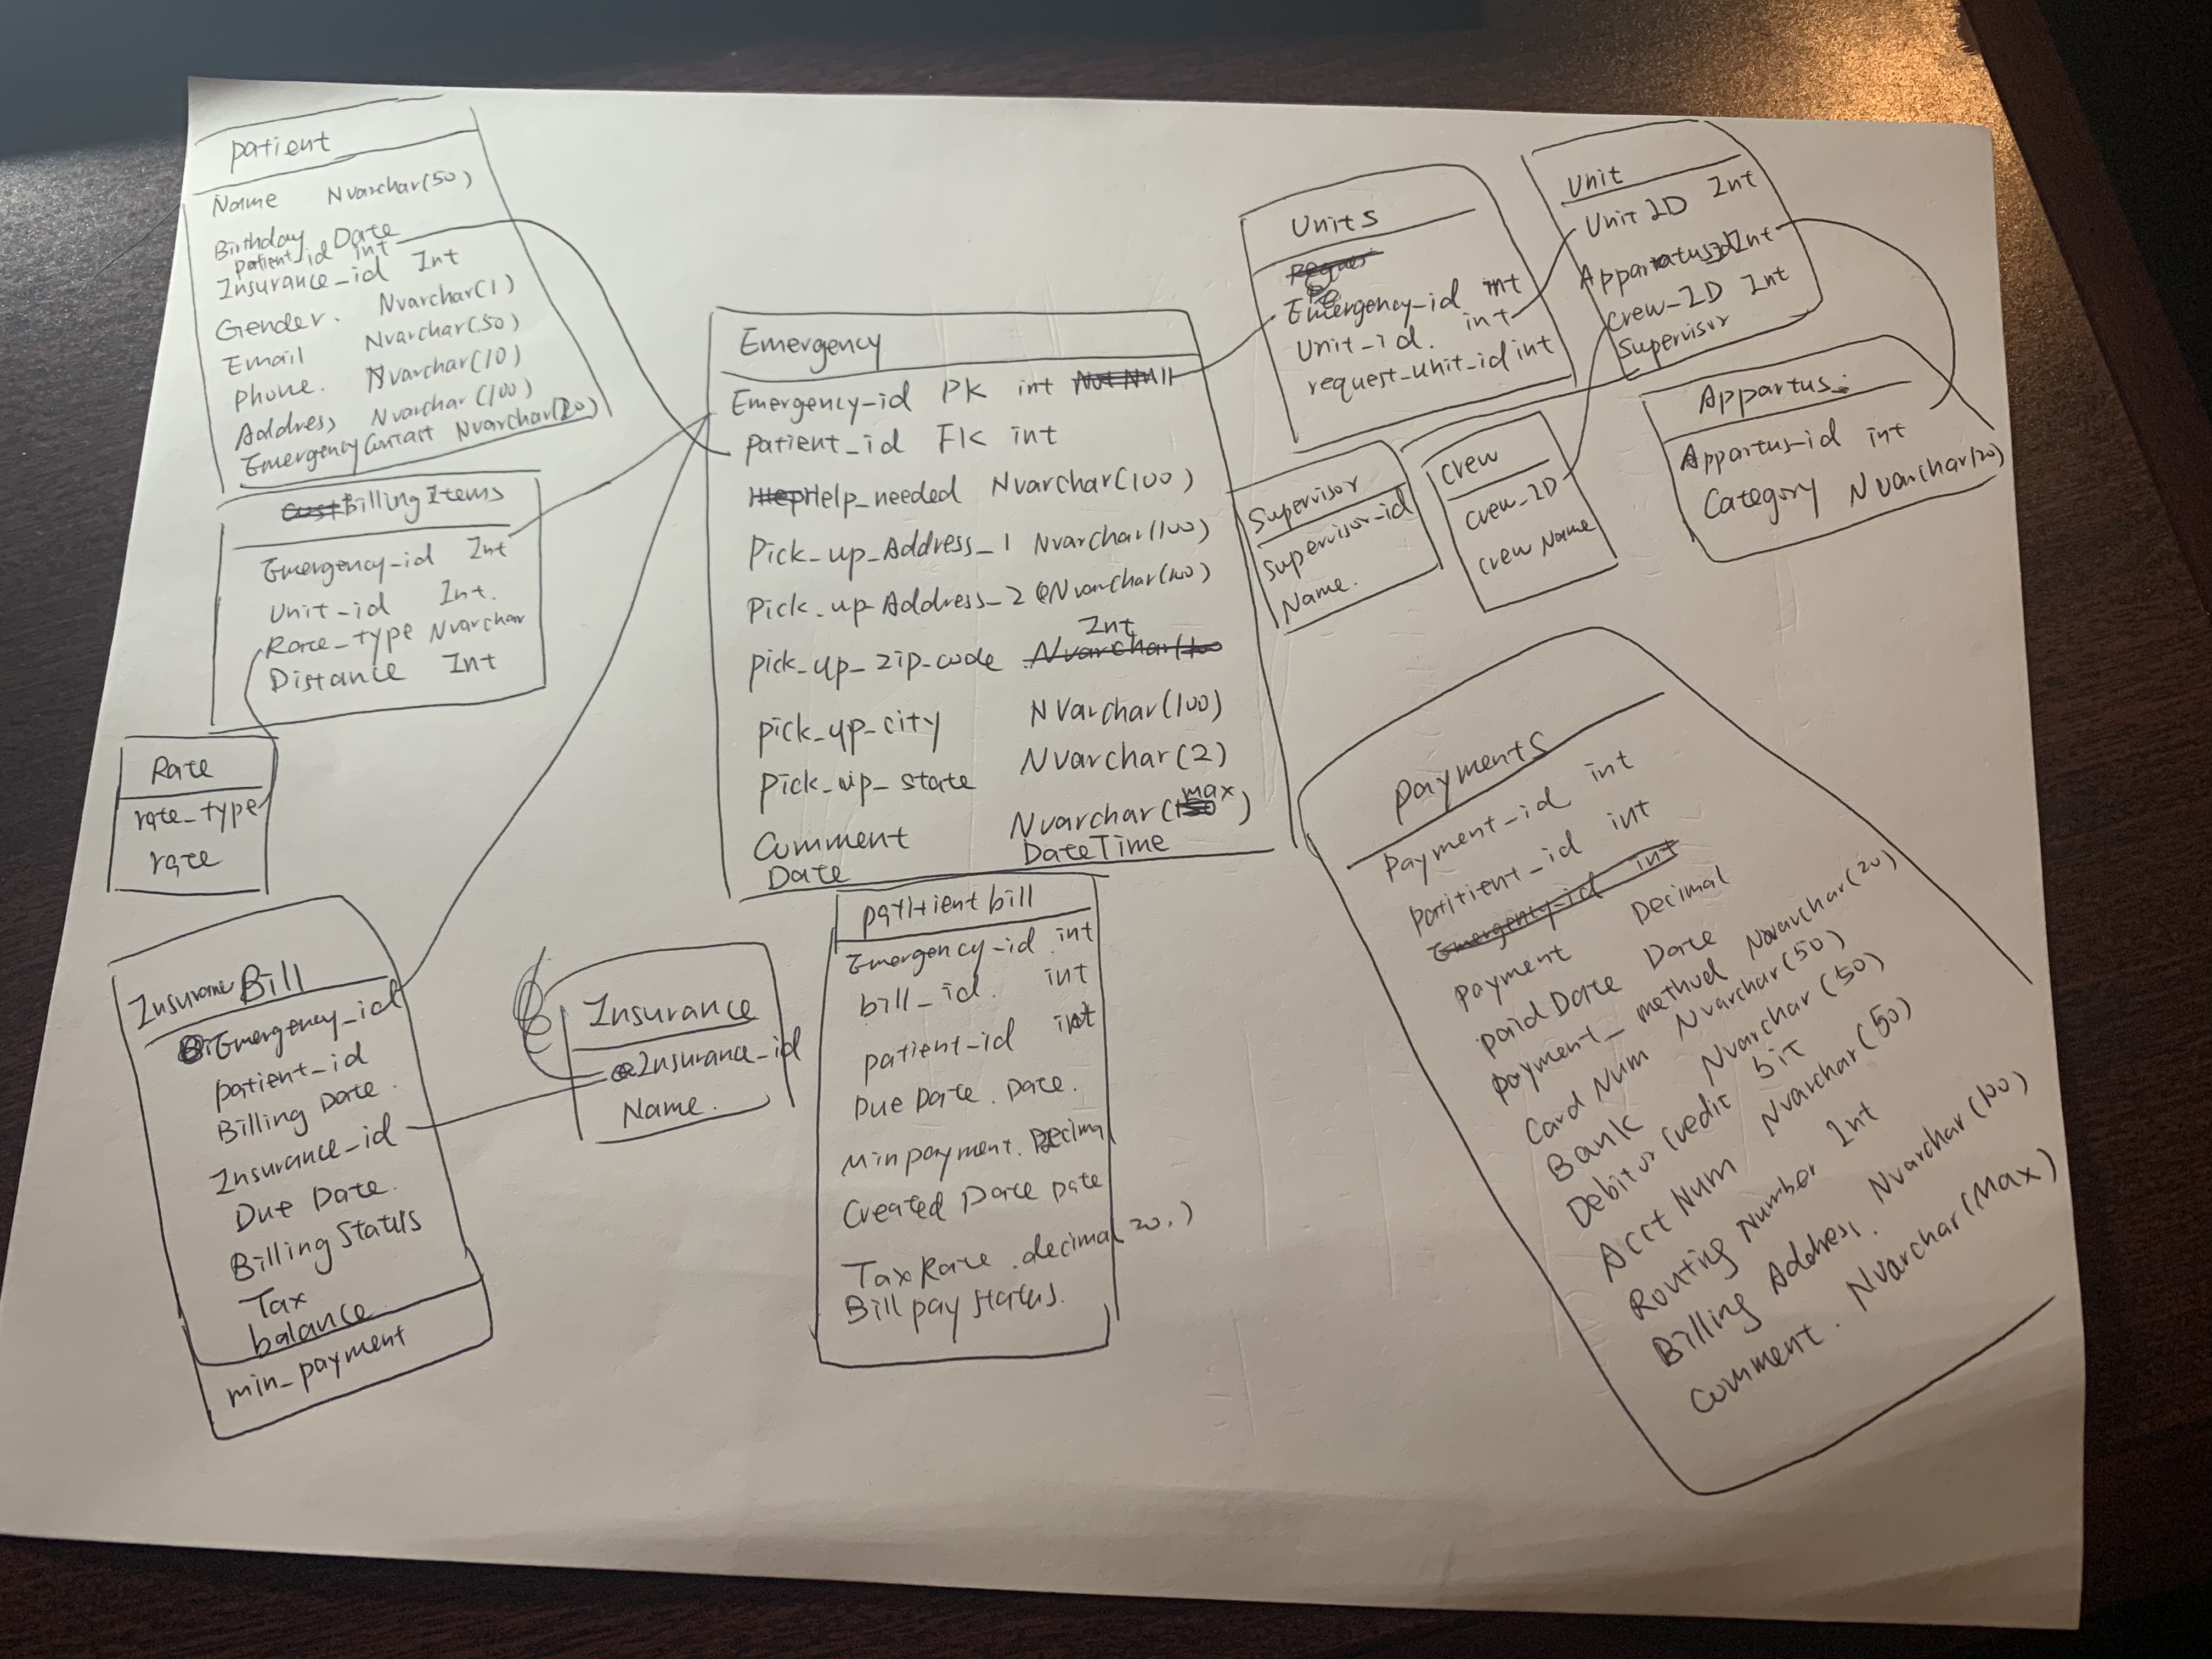 patient
Name Nvarchar(50)
Birthday Date
patient_id int
Insurance_id Int
Gender. Nvarchar(1)
Email Nvarchar(50)
phone. Nvarchar(10)
Address Nvarchar(100)
Emergency Contact Nvarchar(20)
Billing Items
Emergency-id Int
Unit-id Int.
Rate-type Nvarchar
Distance Int
Rate
rate-type
rate
Insurance Bill
Emergency-id
patient_id
Billing Date.
Insurance_id
Due Date.
Billing Status
Tax
balance.
min_payment
Insurance
Insurance_id
Name.
Emergency
Emergency-id PK int
Patient_id FK int
Help_needed Nvarchar(100)
Pick_up_Address_1 Nvarchar(100)
Pick_up_Address_2 Nvarchar(100)
pick_up_zip_code Int
pick_up_city Nvarchar(100)
pick_up_state Nvarchar(2)
Comment Nvarchar(max)
Date DateTime
patient bill
Emergency-id int
bill-id. int
patient-id int
Due Date. Date.
min payment. Decimal
Created Date Date
Tax Rate. decimal
Bill pay status.
Units
Emergency-id int
Unit-id. int
request_unit_id int
Unit
Unit ID Int
Crew-ID Int
Supervisor
Supervisor
Supervisor-id
Name.
Crew
Crew_ID
Crew Name
Appartus
Appartus-id int
Category Nvarchar(20)
payments
payment-id int
patitient-id int
payment Decimal
paid Date Date
payment-method Nvarchar(20)
Card Num Nvarchar(50)
Bank Nvarchar(50)
Debit or Credit bit
Acct Num Nvarchar(50)
Routing Number Int
Billing Address. Nvarchar(100)
Comment. Nvarchar(Max)